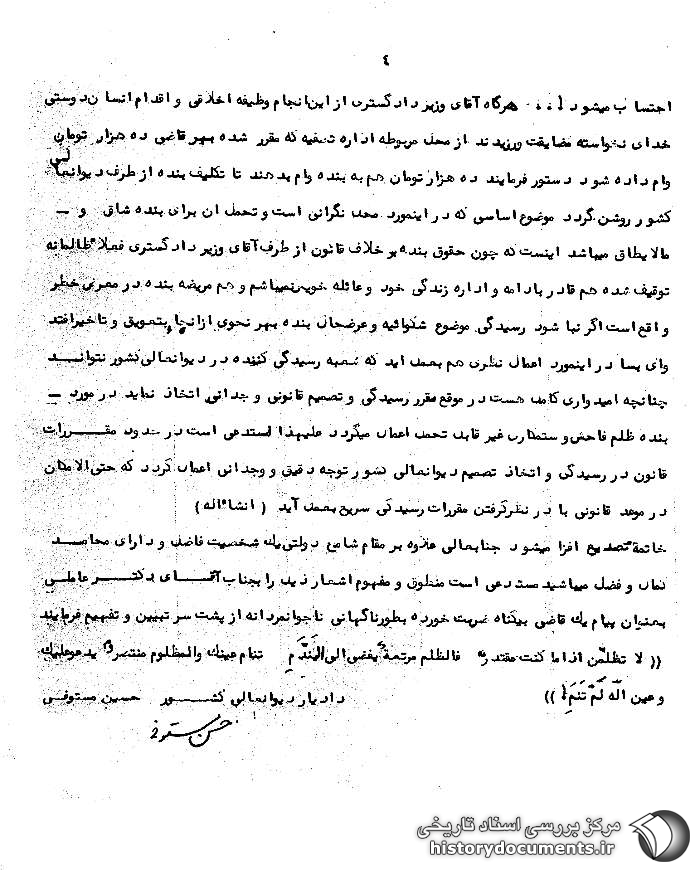 ٤
احتساب میشود ... هرگاه آقای وزیر دادگستری از این انجام وظیفه اخلاقی و اقدام انسان دوستی
خدای نخواسته مضایقت ورزیدند از محل مربوطه اداره تصفیه که مقرر شده بهر قاضی ده هزار تومان
وام داده شود دستور فرمایند ده هزار تومان هم به بنده وام بدهند تا تکلیف بنده از طرف دیوانعالی
کشور روشن گردد موضوع اساسی که در اینمورد محل نگرانی است و تحمل آن برای بنده شاق و ــ
مالایطاق میباشد اینست که چون حقوق بنده بر خلاف قانون از طرف آقای وزیر دادگستری فعلا ظالمانه
توقیف شده هم قادر بادامه و اداره زندگی خود و عائله خویش نمیباشم و هم مریضه بنده در معرض خطر
واقع است اگر نبا شود رسیدگی موضوع شکوائیه و عرضحال بنده بهر نحوی از انحاء بتعویق و تاخیر افتد
وای بسا در اینمورد اعمال نظری هم بعمل اید که شعبه رسیدگی کننده در دیوانعالی کشور نتوانــد
چنانچه امیدواری کامل هست در موقع مقرر رسیدگی و تصمیم قانونی و جدانی اتخاذ نماید در مورد ــ
بنده ظلم فاحش و ستمکاری غیر قابل تحمل اعمال میگردد علیهذا استدعی است در حدود مقــررات
قانون در رسیدگی و اتخاذ تصمیم دیوانعالی کشور توجه دقیق و وجدانی اعمال گردد که حتی الامکان
در موعد قانونی با در نظر گرفتن مقررات رسیدگی سریع بعمل آید ( انشاءاله )
خاتمة تصدیع افزا میشود جنابعالی علاوه بر مقام شامخ دولتی یک شخصیت فاضل و دارای محامــد
کمال و فضل میباشید مستدعی است منطوق و مفهوم اشعار ذیل را بجناب آقــای دکتــر عاملی
بعنوان پیام یک قاضی بیگناه ضربت خورده بطور ناگهانی ناجوانمردانه از پشت سر تبیین و تفهیم فرمایند
(( لا تظلمن اذا ما کنت مقتدراً فالظلم مرتعه یفضی الی الندم تنام عینک والمظلوم منتصر یدعو علیک
و عین الله لم تنم )) دادیار دیوانعالی کشــور حسین مستوفی
حسین مستوفی
مرکز بررسی اسناد تاریخی
historydocuments.ir